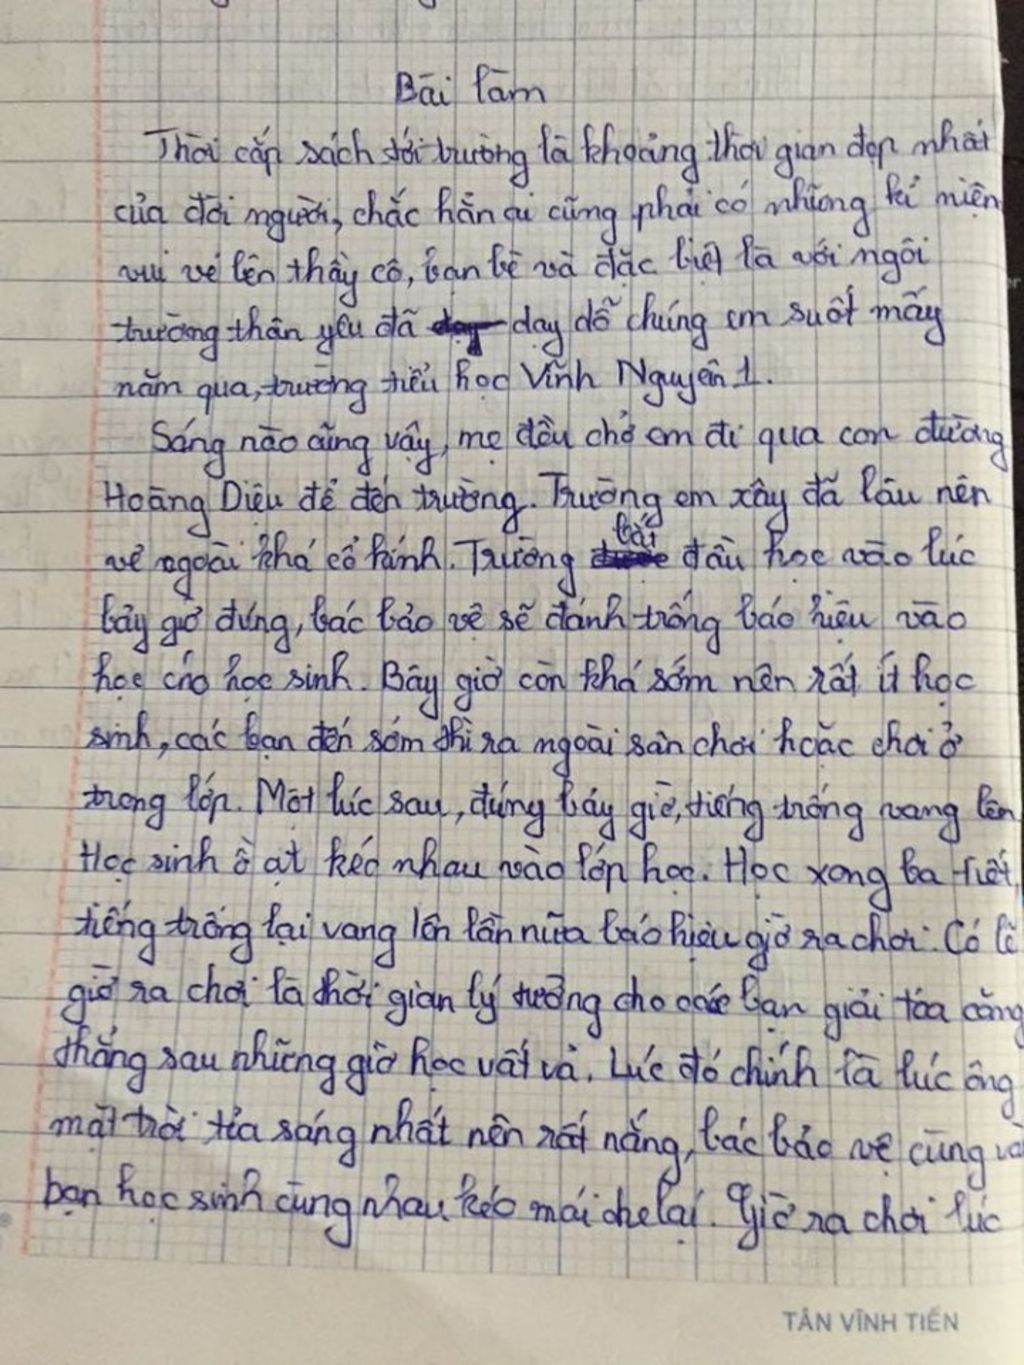 Bài làm
Thời cắp sách tới trường là khoảng thời gian đẹp nhất
của đời người, chắc hẳn ai cũng phải có những kỉ miện
vui vẻ bên thầy cô, bạn bè và đặc biệt là với ngôi
trường thân yêu đã dạy dỗ chúng em suốt mấy
năm qua, trường tiểu học Vĩnh Nguyên 1.
Sáng nào cũng vậy, mẹ đều chở em đi qua con đường
Hoàng Diệu để đến trường. Trường em xây đã lâu nên
vẻ ngoài khá cổ kính. Trường bắt đầu học vào lúc
bảy giờ đúng, bác bảo vệ sẽ đánh trống báo hiệu vào
học cho học sinh. Bây giờ còn khá sớm nên rất ít học
sinh, các bạn đến sớm thì ra ngoài sân chơi hoặc chơi ở
trong lớp. Một lúc sau, đúng bảy giờ, tiếng trống vang lên
Học sinh ồ ạt kéo nhau vào lớp học. Học xong ba tiết,
tiếng trống lại vang lên lần nữa báo hiệu giờ ra chơi. Có lẽ
giờ ra chơi là thời gian lý tưởng cho các bạn giải tỏa căng
thẳng sau những giờ học vất vả. Lúc đó chính là lúc ông
mặt trời tỏa sáng nhất nên rất nắng, bác bảo vệ cùng
bạn học sinh cùng nhau kéo mái che lại. Giờ ra chơi lúc
TÂN VĨNH TIẾN